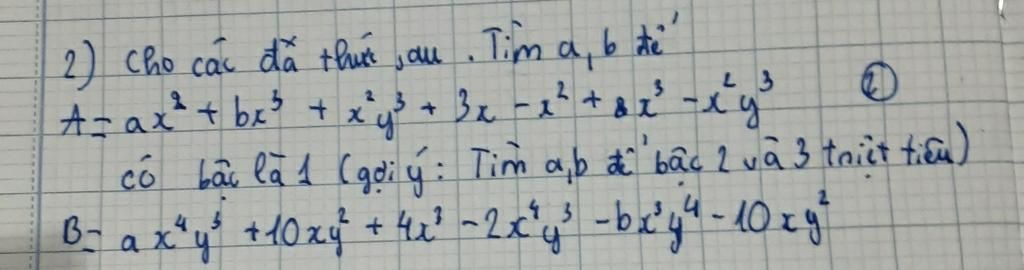 2) Cho các đã thức sau. Tìm a, b để
A = ax² + bx³ + x²y³ + 3x - x² + 8x³ - x²y³ ②
có bậc là 1 (gợi ý: Tìm a,b để bậc 2 và 3 triệt tiêu)
B = ax⁴y³ + 10xy² + 4x³ - 2x⁴y³ - bx³y⁴ - 10xy²